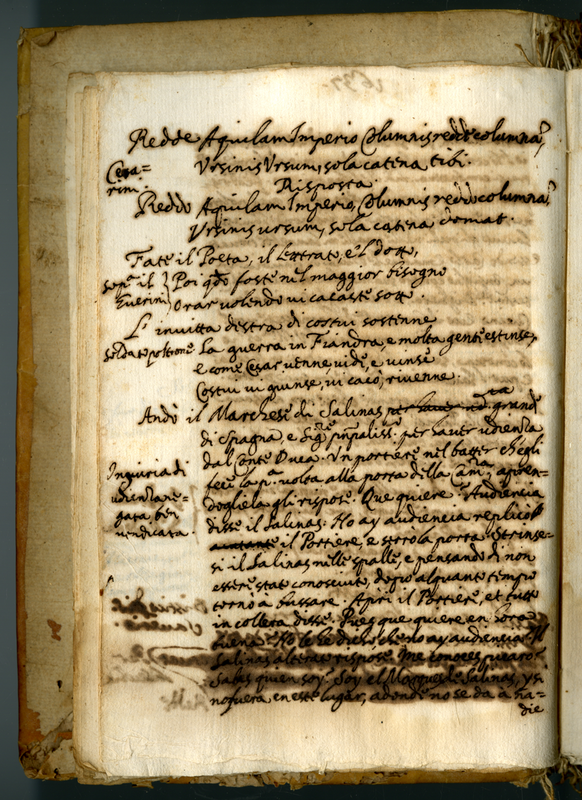 1637
Redde Aquilam Imperio Columnis redde columnã,
Vrsinis Vrsum, sola catena tibi.
Cesa=
rini
Risposta
Reddo Aquilam Imperio, Columnis reddo columnã,
Vrsinis ursum, sola catena domat.
Fate il Poeta, il lettrato, e'l dotto,
sopª il
Guerini
Poi qdo foste nel maggior bisogno
Orar volendo vi cacaste sotto.
L'invitta destra di costui sostenne
soldato poltrone
La guerra in Fiandra, e molta gente estinse,
e come Cesar venne, vidi, e vinse
Costui vi giunse, vi cacò, rivenne.
Andò il Marchese di Salinas grande
di Spagna, e Sigre pnpaliss. per haver udienza
dal Conte Duca. Un portiere nel batter ch'egli
Ingiuria di
udienza ne=
gata, ben
vendicata.
fece la pª volta alla porta della Camrª, apren=
dogliela gli rispose. Que quiere? Audiencia
disse il Salinas. No ay audiencia replicò
il Portiere, e serrò la porta. Strinse=
si il Salinas nelle spalle, e pensando di non
essere stato conosciuto, dopo alquanto tempo
torno a bussare. Aprì il Portiere, et tutto
in collera disse. Pues que quiere en hora
buena? No le he dicho, che no ay audiencia? Il
Salinas alterato rispose. Me conoces picaro?
Sabes quien soy? Soy el Marques de Salinas, y si
no fuera en este lugar, adonde no se da a na=
die